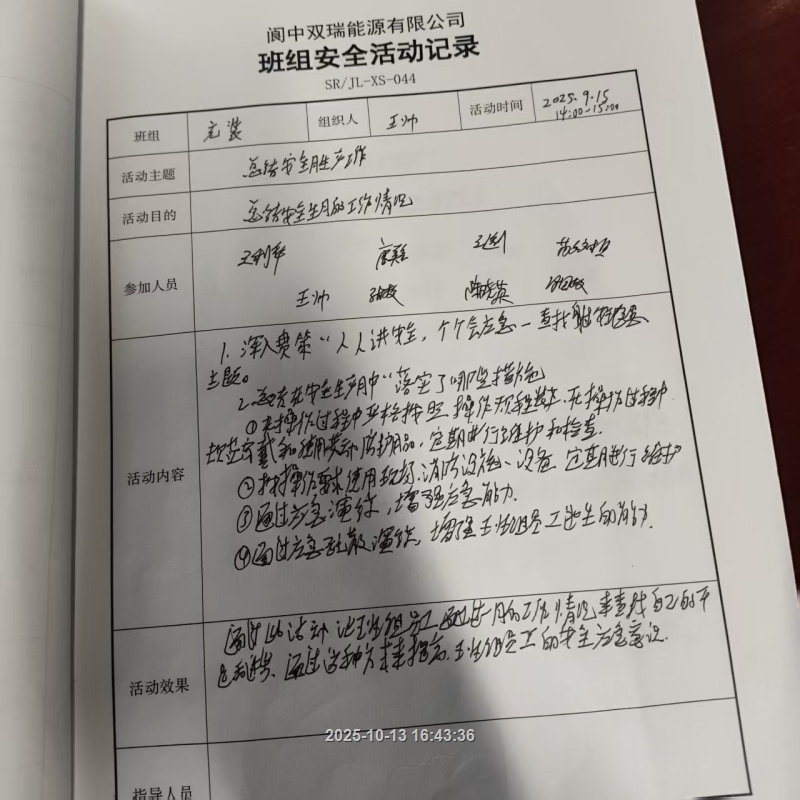 阆中双瑞能源有限公司
班组安全活动记录
SR/JL-XS-044
班组 充装 组织人 王帅 活动时间 2025.9.15 14:00-15:00
活动主题 总结安全月生产工作
活动目的 总结安全生产月的工作情况
参加人员
王帅
活动内容
1.深入贯策“人人讲安全,个个会应急—查找身边隐患
主题。
2.总结在安全生产月中“落实了哪些措施
①在操作过程中严格按照操作规程 在操作过程中
规范穿戴和使用劳动防护用品,定期进行维护和检查.
②按操作要求使用现场消防设施、设备 定期进行维护
③通过应急演练,增强应急能力.
④通过应急疏散演练,增强王班组员工逃生的能力.
活动效果
通过此活动 让王班组员工 通过 月的工作情况来查找自己的不
足和进步.通过这种方式来提高王班组员工的安全应急意识.
指导人员
2025-10-13 16:43:36